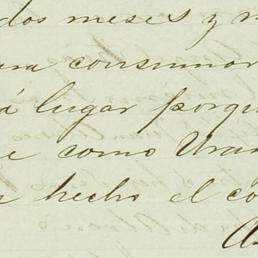 dos meses y m
ara consumar
á lugar porqu
e como Uran
n hecho el co
A